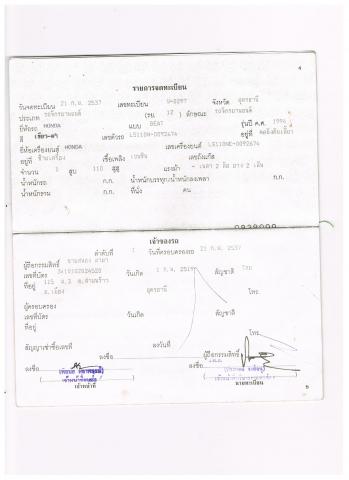 4
รายการจดทะเบียน
วันจดทะเบียน 21 ก.พ. 2537 เลขทะเบียน จังหวัด อุดรธานี
ประเภท รถจักรยานยนต์ (รย. 12 ) ลักษณะ รถจักรยานยนต์
ยี่ห้อรถ HONDA แบบ BEAT รุ่นปี ค.ศ. 1994
สี เลขตัวรถ LS110N-0092674 อยู่ที่
ยี่ห้อเครื่องยนต์ HONDA เลขเครื่องยนต์ LS110NE-0092674
อยู่ที่ เชื้อเพลิง เบนซิน เลขถังแก๊ส
จำนวน 1 สูบ 110 ซีซี แรงม้า - เพลา 2 ล้อ ยาง 2 เส้น
น้ำหนักรถ ก.ก. น้ำหนักบรรทุก/น้ำหนักลงเพลา ก.ก.
น้ำหนักรวม ก.ก. ที่นั่ง คน
เจ้าของรถ
ลำดับที่ 1 วันที่ครอบครองรถ 21 ก.พ. 2537
ผู้ถือกรรมสิทธิ์
เลขที่บัตร วันเกิด 1 ก.พ. 2519 สัญชาติ ไทย
ที่อยู่ 115 ม.3 ต.สามพร้าว โทร.
อ.เมือง อุดรธานี
ผู้ครอบครอง
เลขที่บัตร วันเกิด สัญชาติ
ที่อยู่
โทร.
สัญญาเช่าซื้อเลขที่ ลงวันที่
ลงชื่อ ผู้ถือกรรมสิทธิ์
ลงชื่อ ลงชื่อ
เจ้าหน้าที่ นายทะเบียน
5